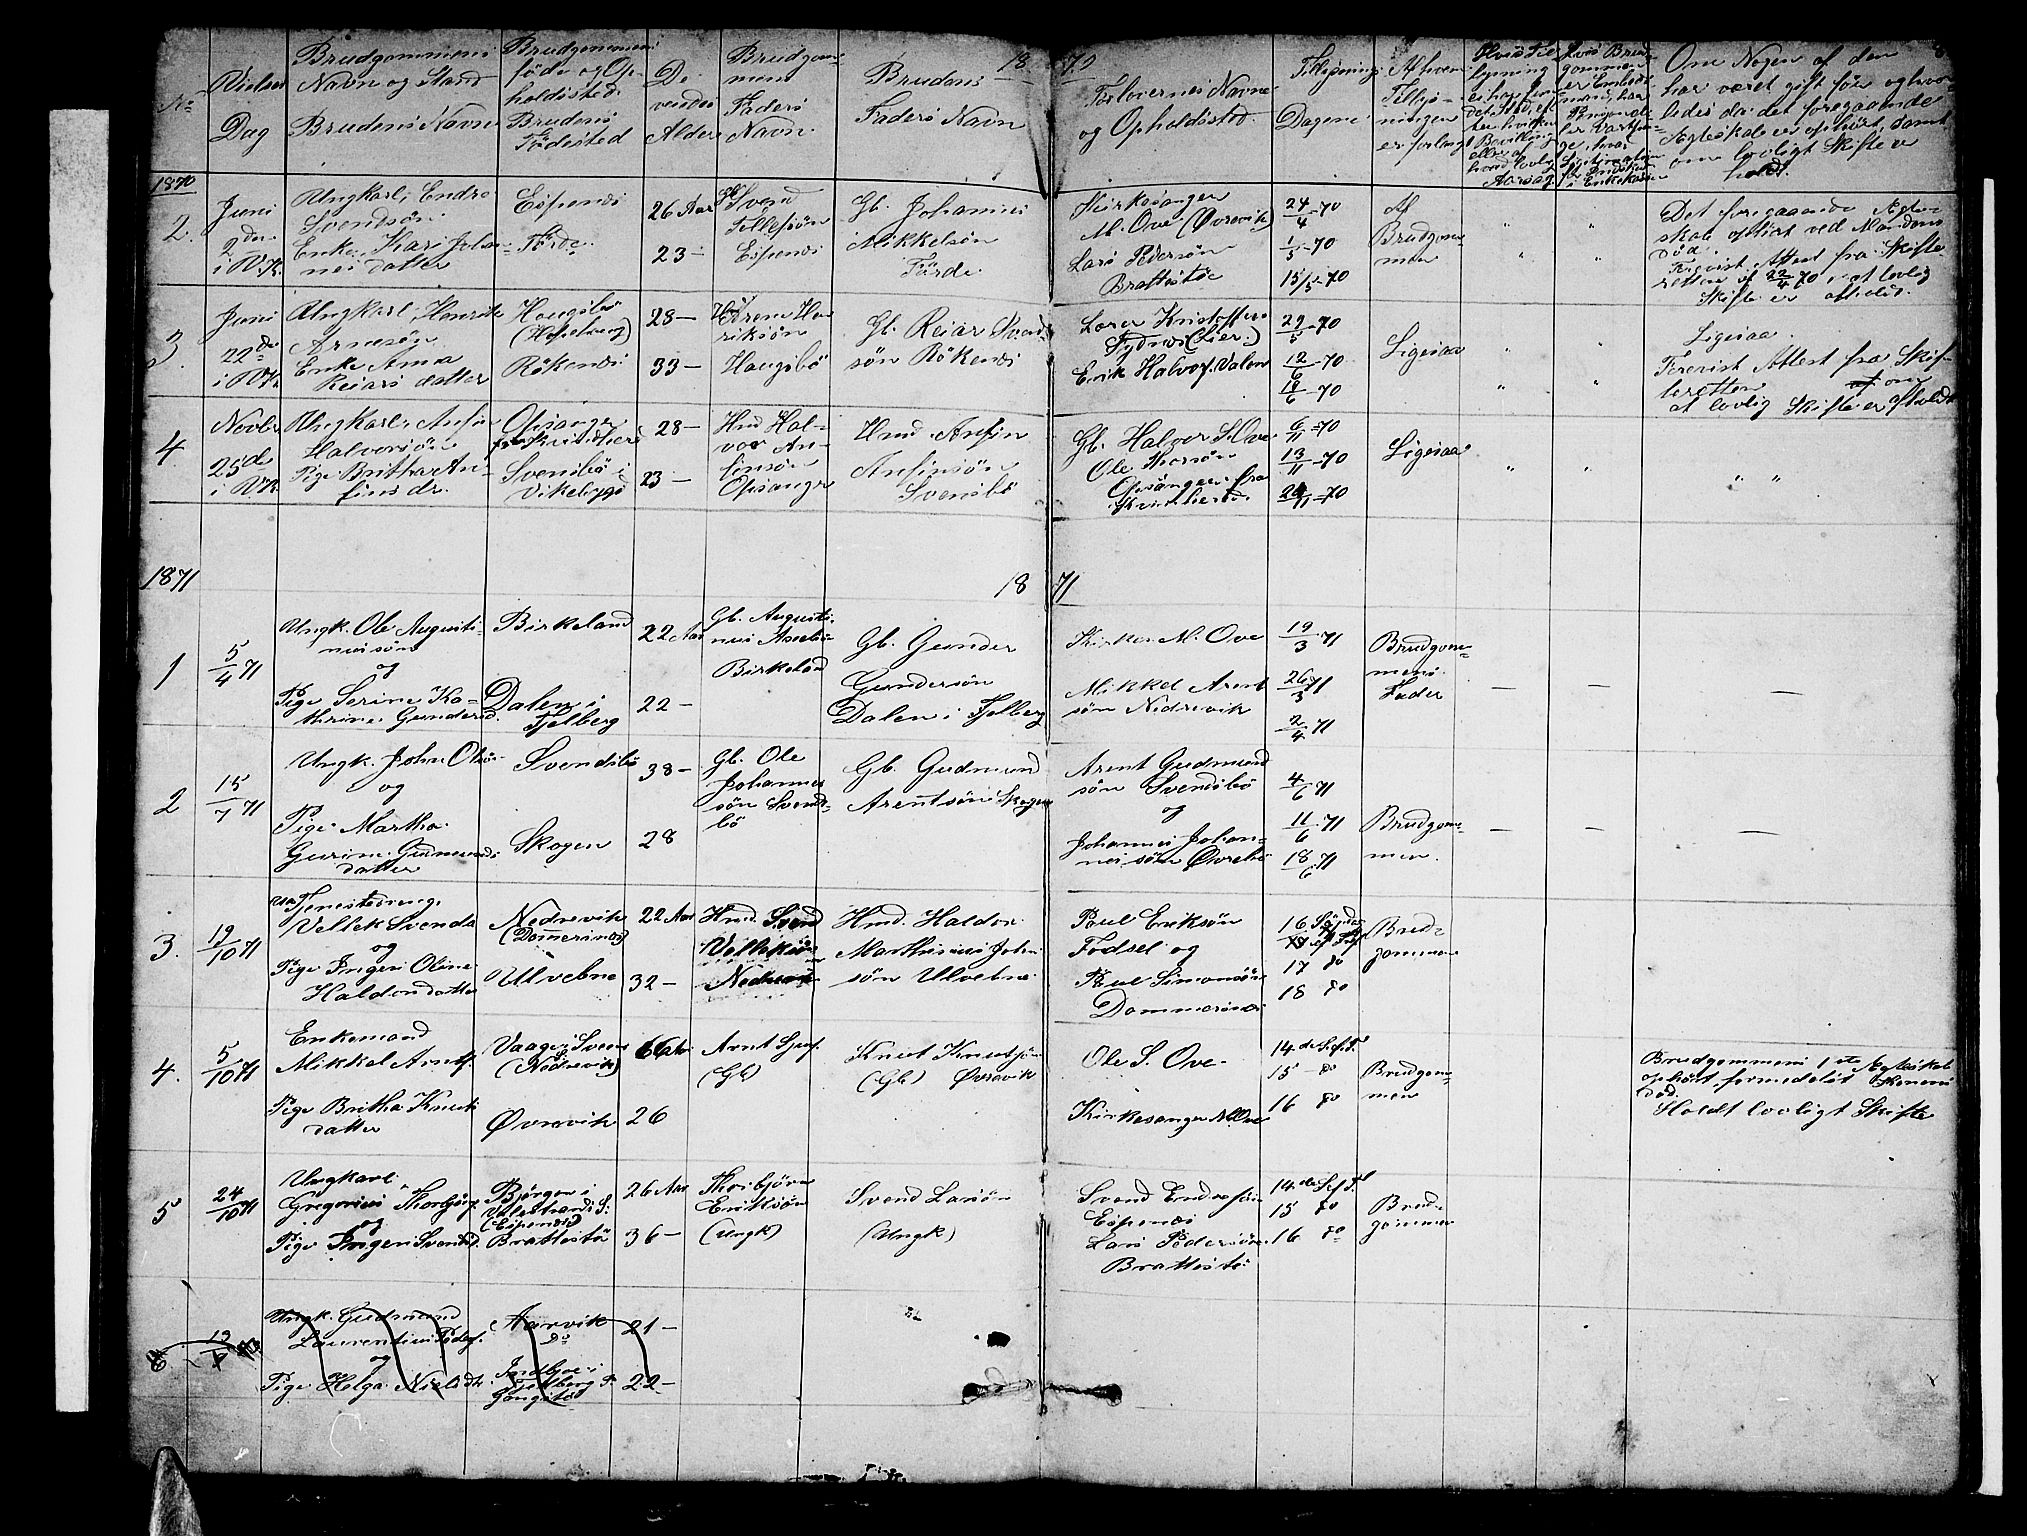 18 70
No
Vielses
Dag
Brudgommens
Navn og Stand
Brudens Navn
Brudgommens
føde og Op-
holdssted.
Brudens
Fødested
De-
vendes
Alder
Brudgom-
mens
Faders
Navn.
Brudens
Faders Navn
Forlovernes Navne
og Opholdssted.
Tillysnings
Dagene
Af hvem
Tillys-
ningen
er forlangt
Om Nogen af dem
har været gift før og hvor-
ledes da det foregaaende
Ægteskab er ophört, samt
om lovligt Skifte er
holdt.
1870
2.
Juni
2den
i V.K.
Ungkarl, Endre
Svendsön
Enke, Kari Johan-
nes datter
Espenæs
Förde
26 Aar
23 –
Gb. Svend
Tollefsön
Espenæs
Gb. Johannes
Mikkelsön
Förde.
Kirkesanger
M. Ove (Øvrevik)
Lars Pedersön
Brattestöe
24/4 - 70
1/5 - 70
15/5 - 70
Af
Brudgom-
men
Det foregaaende Ægte-
skab ophört ved Mandens
Död.
Forevist Attest fra Skifte-
retten af 22/4 70, at lovlig
Skifte er afholdt.
3.
Juni
22de
i V.K.
Ungkarl, Henrik
Arnesön
Enke Anna
Reiars datter
Haugsbö
Rökenæs
28 –
33 –
Haugsbö
Gb. Reiar Svend-
sön Rökenæs
Erik Halvors. Valen
29/5 - 70
12/6 - 70
19/6 - 70
Ligesaa
Ligesaa
Forevist Attest fra Skif-
teretten om
at lovlig Skifte er afholdt
4.
Novbr
25de
i V.K.
Ungkarl, Anfin
Halvorsön
Pige Britha An-
fins dr.
Opsanger
fra Kvindherred
Svensbö i
Vikebygd
28 –
23 –
Hmd Hal-
vor An-
finsön
Opsanger
Hmd. Anfin
Anfinsön
Svensbö
Gb. Halvor S. Ove
Ole Thorsön
Opsanger fra
Kvindherred
6/11 - 70
13/11 - 70
20/11 - 70
Ligesaa
1871
18 71
1
5/4 71
Ungk. Ole Augusti-
nussön
og
Pige Serine Ka-
thrine Gundersd.
Birkeland
Dalen i
Fjelberg
22 Aar
22 –
Gb. Augusti-
nus
Birkeland
Gb. Gunder
Gundersön
Dalen i Fjelberg
Kirkes. M. Ove
Mikkel Arent
sön Nedrevik
19/3 71
26/3 71
2/4 71
Brudgom-
mens
Fader
2
15/7 71
Ungk. John Olsön
og
Pige Martha
Gurine Gudmunds
datter
Svendsbö
Skogen
38 –
28
Gb. Ole
Johannes
sön Svends-
bö
Gb. Gudmund
Arentsön Skogen
Arent Gudmund
sön Svendsbö
og
Johannes Johan-
nessön Øvrebö
4/6 71
11/6 71
18/6 71
Brudgom-
men.
3.
19/10 71
Tjenestedreng
Vellek Svends.
og
Pige Inger Oline
Haldordatter
Nedrevik
Ulvebne
22 Aar
32 –
Hmd. Svend
Velleksön
Nedrevik
Hmd. Haldor
Marthinus John
sön Ulvebne
Poul Eriksön
Tödsel og
Poul Simonsön
Dommersnes
16
17 do
18 do
Brud-
gommen
4.
5/10 71
Enkemand
Mikkel Arntf.
Pige Britha Knuts
datter
Vaage i Sveen
(Nedrevik)
Øvrevik
66 Aar
26
Arnt
(Gb)
Knut Knutsön
(Gb) Øvrevik
Ole S. Ove
Kirkesanger M. Ove
14de S. ef. Tr.
15 – do
16 do
Brudgom-
men
Brudgommens 1ste Ægteskab
ophört formedelst Konens
Död.
Holdt lovligt Skifte
5
24/10 71
Ungkarl
Gregorius Thorbjörns.
og
Pige Inger Svendsd.
Bjørgen i
Valestrand S.
(Espenæs)
Brattestö
26 Aar
36 –
Thorbjörn
Eriksön
(Ungk)
Svend Larsön
(Ungk)
Svend Endresön
Espenæs
Lars Pedersön
Brattestö
14de S. ef. Tr.
15 do
16 do
Brud-
gommen
6
Ungk. Gudmund
Laurentius Peders.
og
Pige Helga Nielsdtr.
Aarvik
do
21 –
22 –